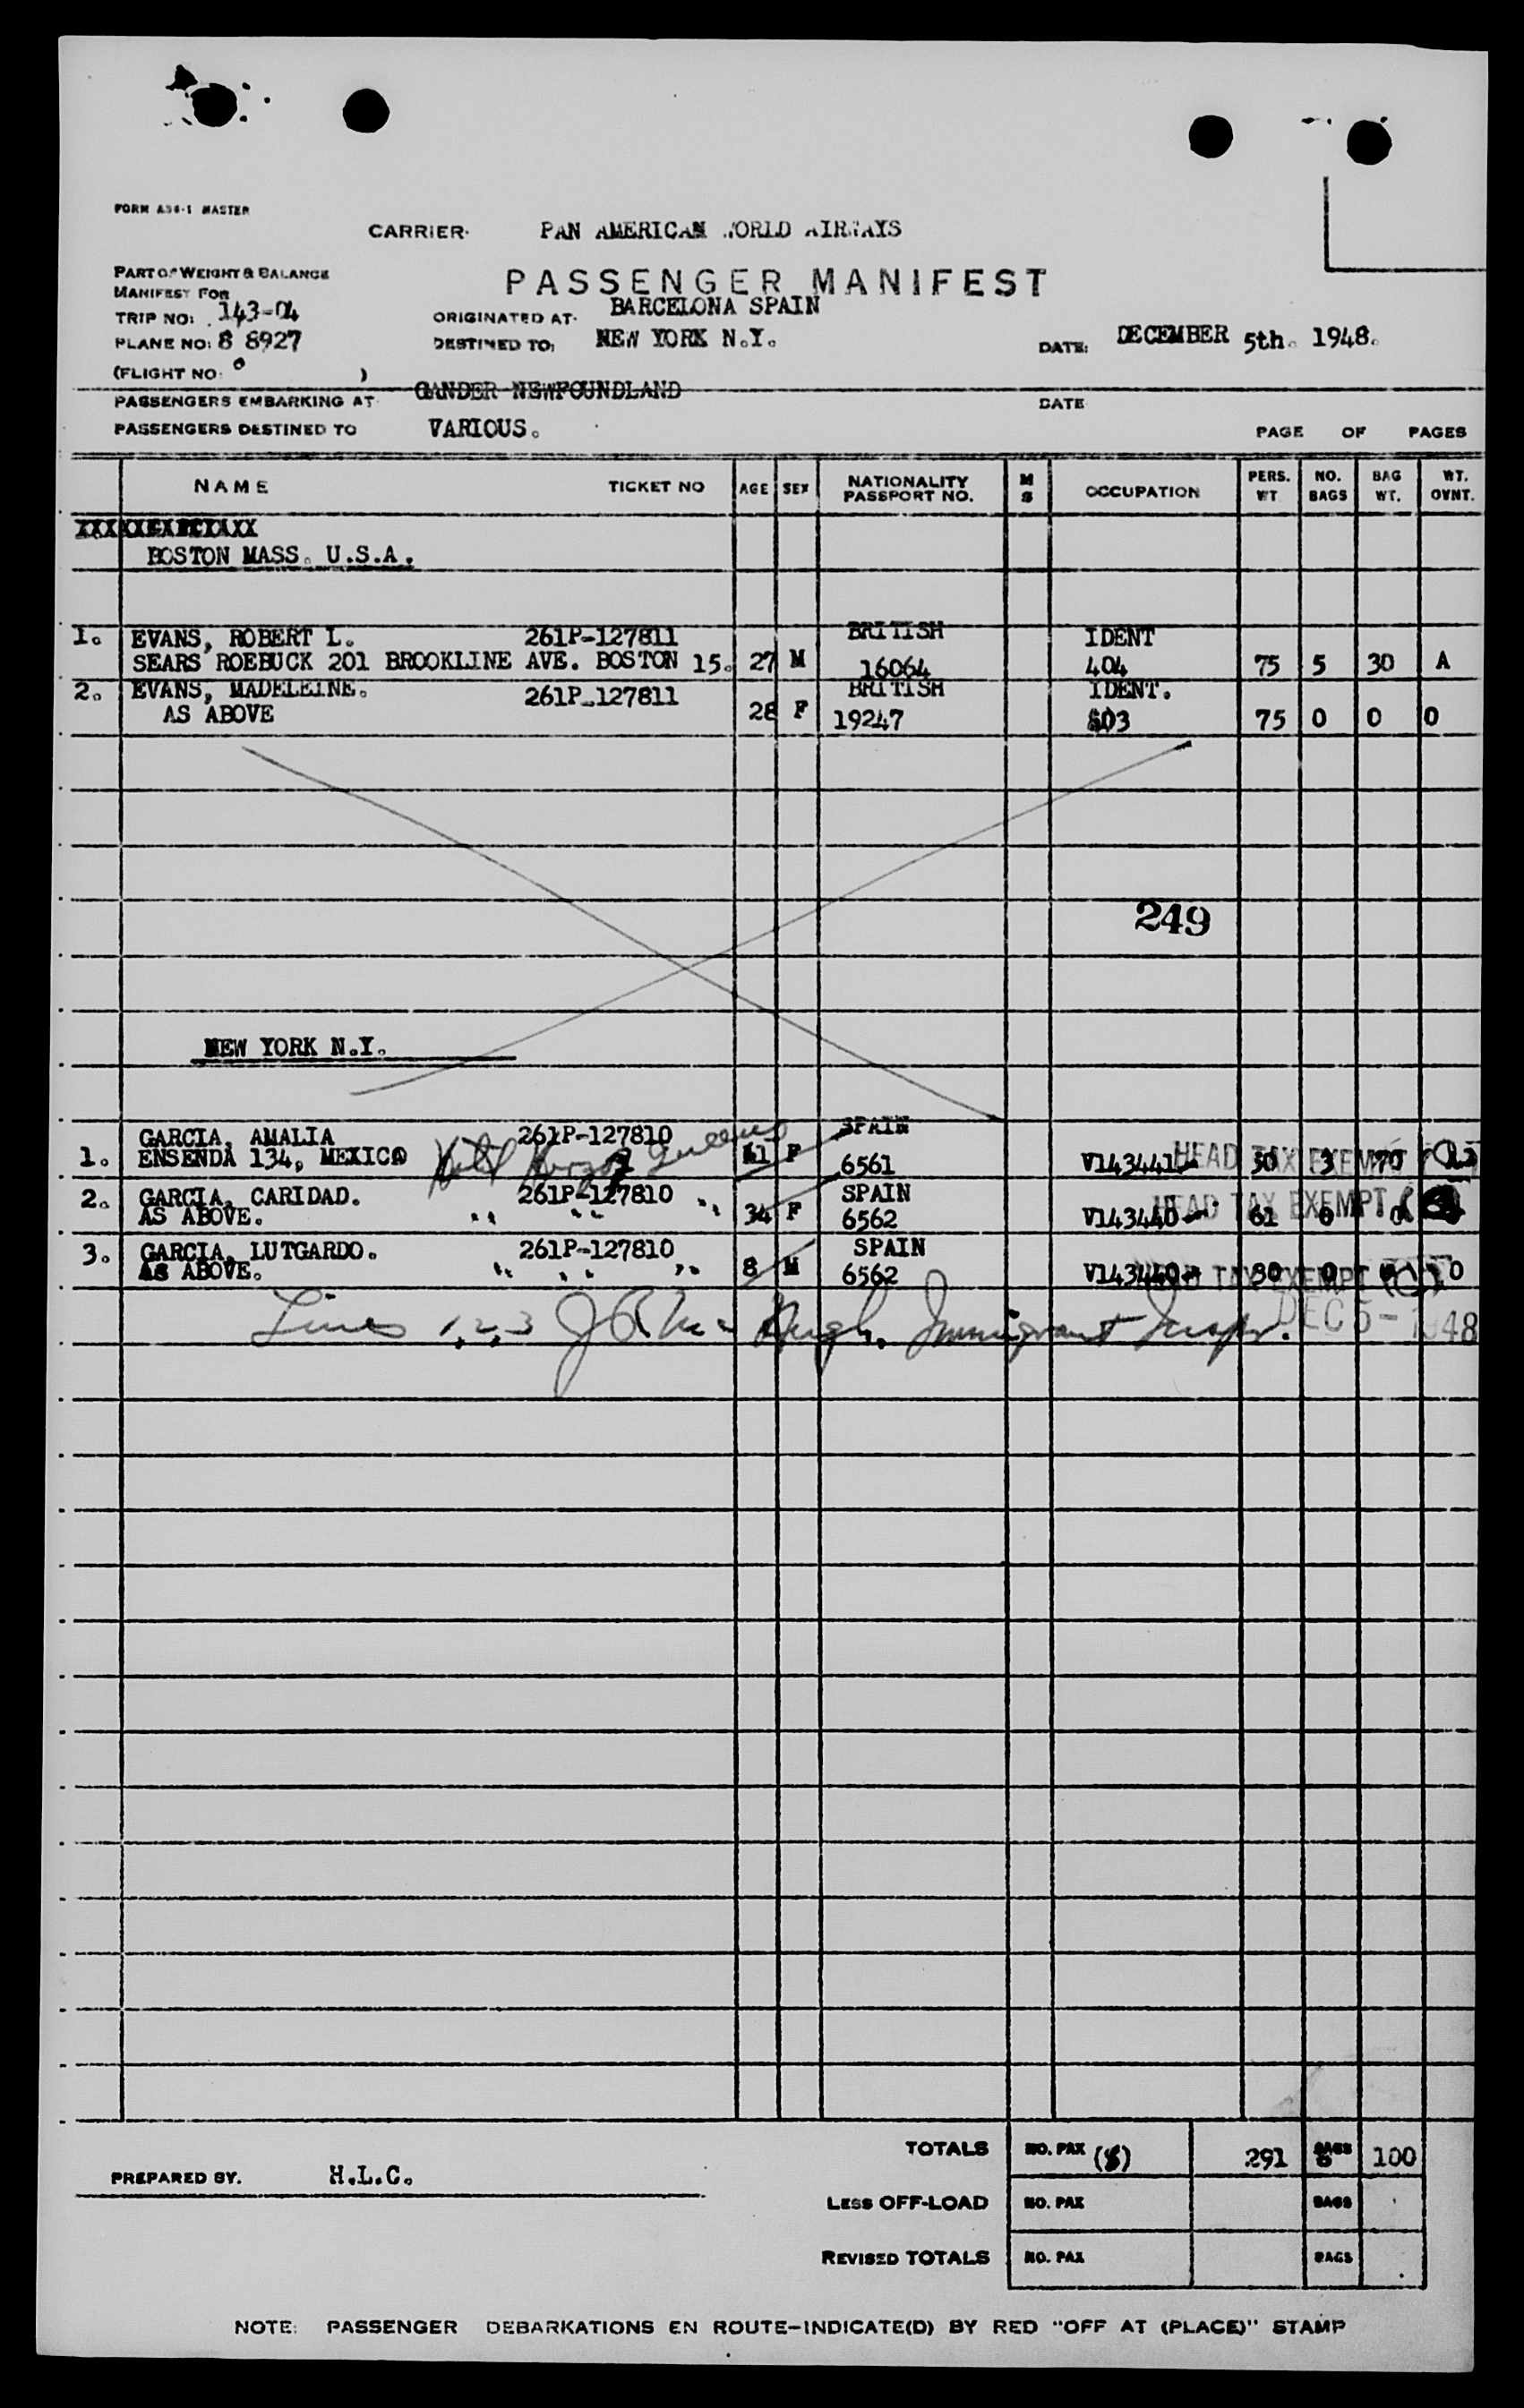 FORM A34-1 MASTER
CARRIER: PAN AMERICAN WORLD AIRWAYS
PART OF WEIGHT & BALANCE
MANIFEST FOR
PASSENGER MANIFEST
TRIP NO: 143-04
ORIGINATED AT: BARCELONA SPAIN
PLANE NO: 8 8927
DESTINED TO: NEW YORK N.Y.
DATE: DECEMBER 5th. 1948.
(FLIGHT NO: )
PASSENGERS EMBARKING AT GANDER NEWFOUNDLAND
DATE
PASSENGERS DESTINED TO VARIOUS.
PAGE OF PAGES
NAME TICKET NO AGE SEX NATIONALITY PASSPORT NO. M S OCCUPATION PERS. WT NO. BAGS BAG WT. WT. OVNT.
BOSTON MASS. U.S.A.
1. EVANS, ROBERT L. 261P-127811 BRITISH IDENT
SEARS ROEBUCK 201 BROOKLINE AVE. BOSTON 15. 27 M 16064 404 75 5 30 A
2. EVANS, MADELEINE. 261P-127811 BRITISH IDENT.
AS ABOVE 28 F 19247 03 75 0 0 0
249
NEW YORK N.Y.
GARCIA, AMALIA 261P-127810 SPAIN
1. ENSENDA 134, MEXICO Hotel F 6561 V143441 HEAD TAX EXEMPT 50 3 70
2. GARCIA, CARIDAD. 261P-127810 SPAIN
AS ABOVE. " " " 34 F 6562 V143440 HEAD TAX EXEMPT 61 0 0
3. GARCIA, LUTGARDO. 261P-127810 SPAIN
AS ABOVE. " " " 8 M 6562 V143440 HEAD TAX EXEMPT 30 0 0 0
Lines 1,2,3 Immigrant Inspr. DEC 5 - 1948
TOTALS NO. PAX 291 BAGS 100
PREPARED BY. H.L.C.
LESS OFF-LOAD NO. PAX BAGS
REVISED TOTALS NO. PAX BAGS
NOTE: PASSENGER DEBARKATIONS EN ROUTE-INDICATE(D) BY RED "OFF AT (PLACE)" STAMP